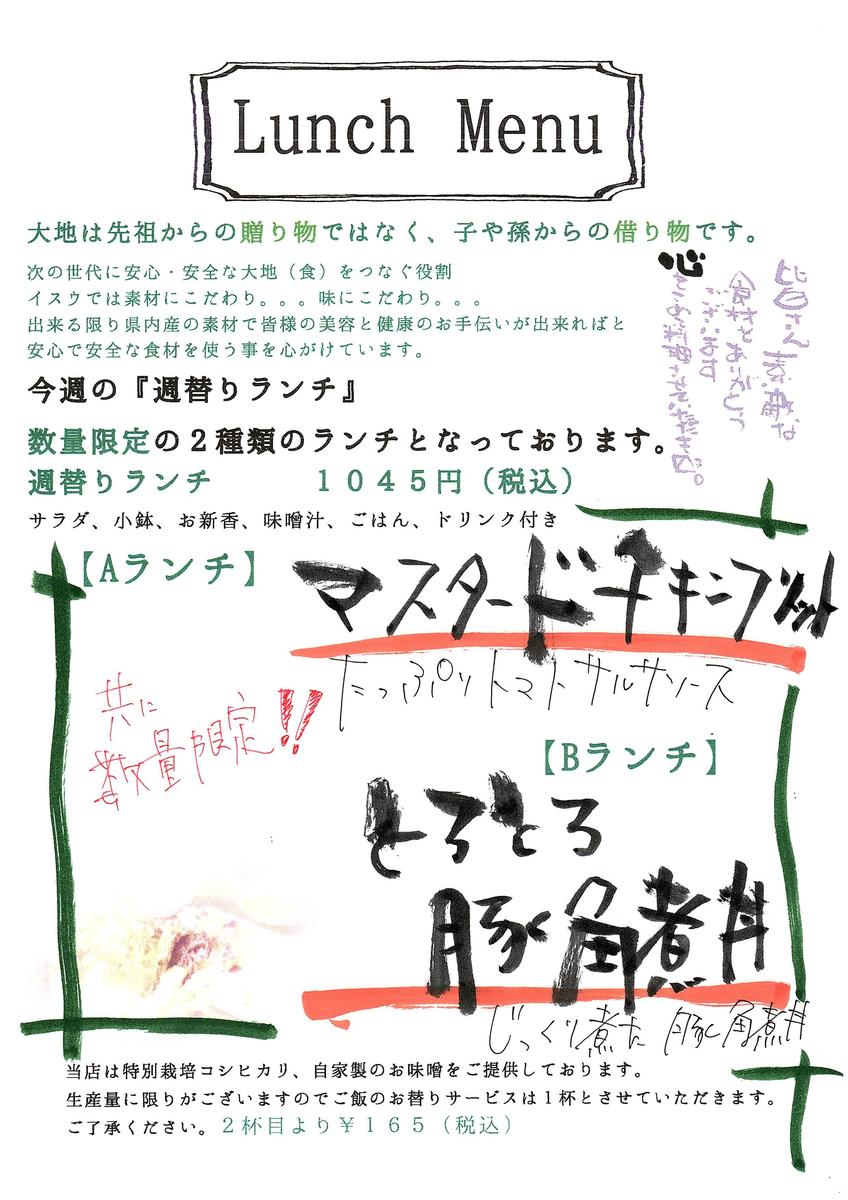 Lunch Menu
大地は先祖からの贈り物ではなく、子や孫からの借り物です。
次の世代に安心・安全な大地（食）をつなぐ役割
イスウでは素材にこだわり。。。味にこだわり。。。
出来る限り県内産の素材で皆様の美容と健康のお手伝いが出来ればと
安心で安全な食材を使う事を心がけています。
皆さん素敵な
食材をありがとう
ございます
心
をこめて料理させていただきます。
今週の『週替りランチ』
数量限定の２種類のランチとなっております。
週替りランチ　１０４５円（税込）
サラダ、小鉢、お新香、味噌汁、ごはん、ドリンク付き
【Aランチ】
マスタードチキンフリット
たっぷりトマトサルサソース
共に
数量限定!!
【Bランチ】
とろとろ
豚角煮丼
じっくり煮た 豚角煮丼
当店は特別栽培コシヒカリ、自家製のお味噌をご提供しております。
生産量に限りがございますのでご飯のお替りサービスは１杯とさせていただきます。
ご了承ください。２杯目より￥１６５（税込）